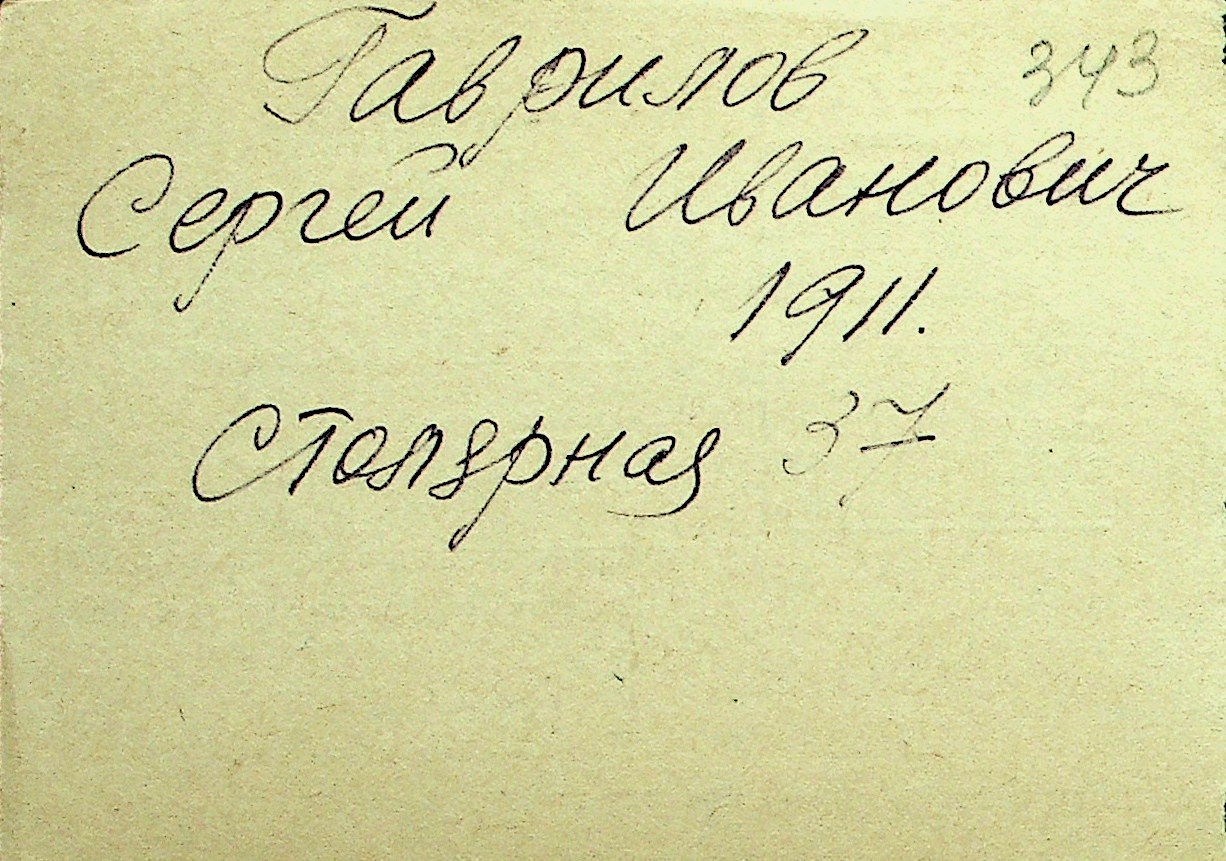 Гаврилов 343
Сергей Иванович
1911.
Столярная 37